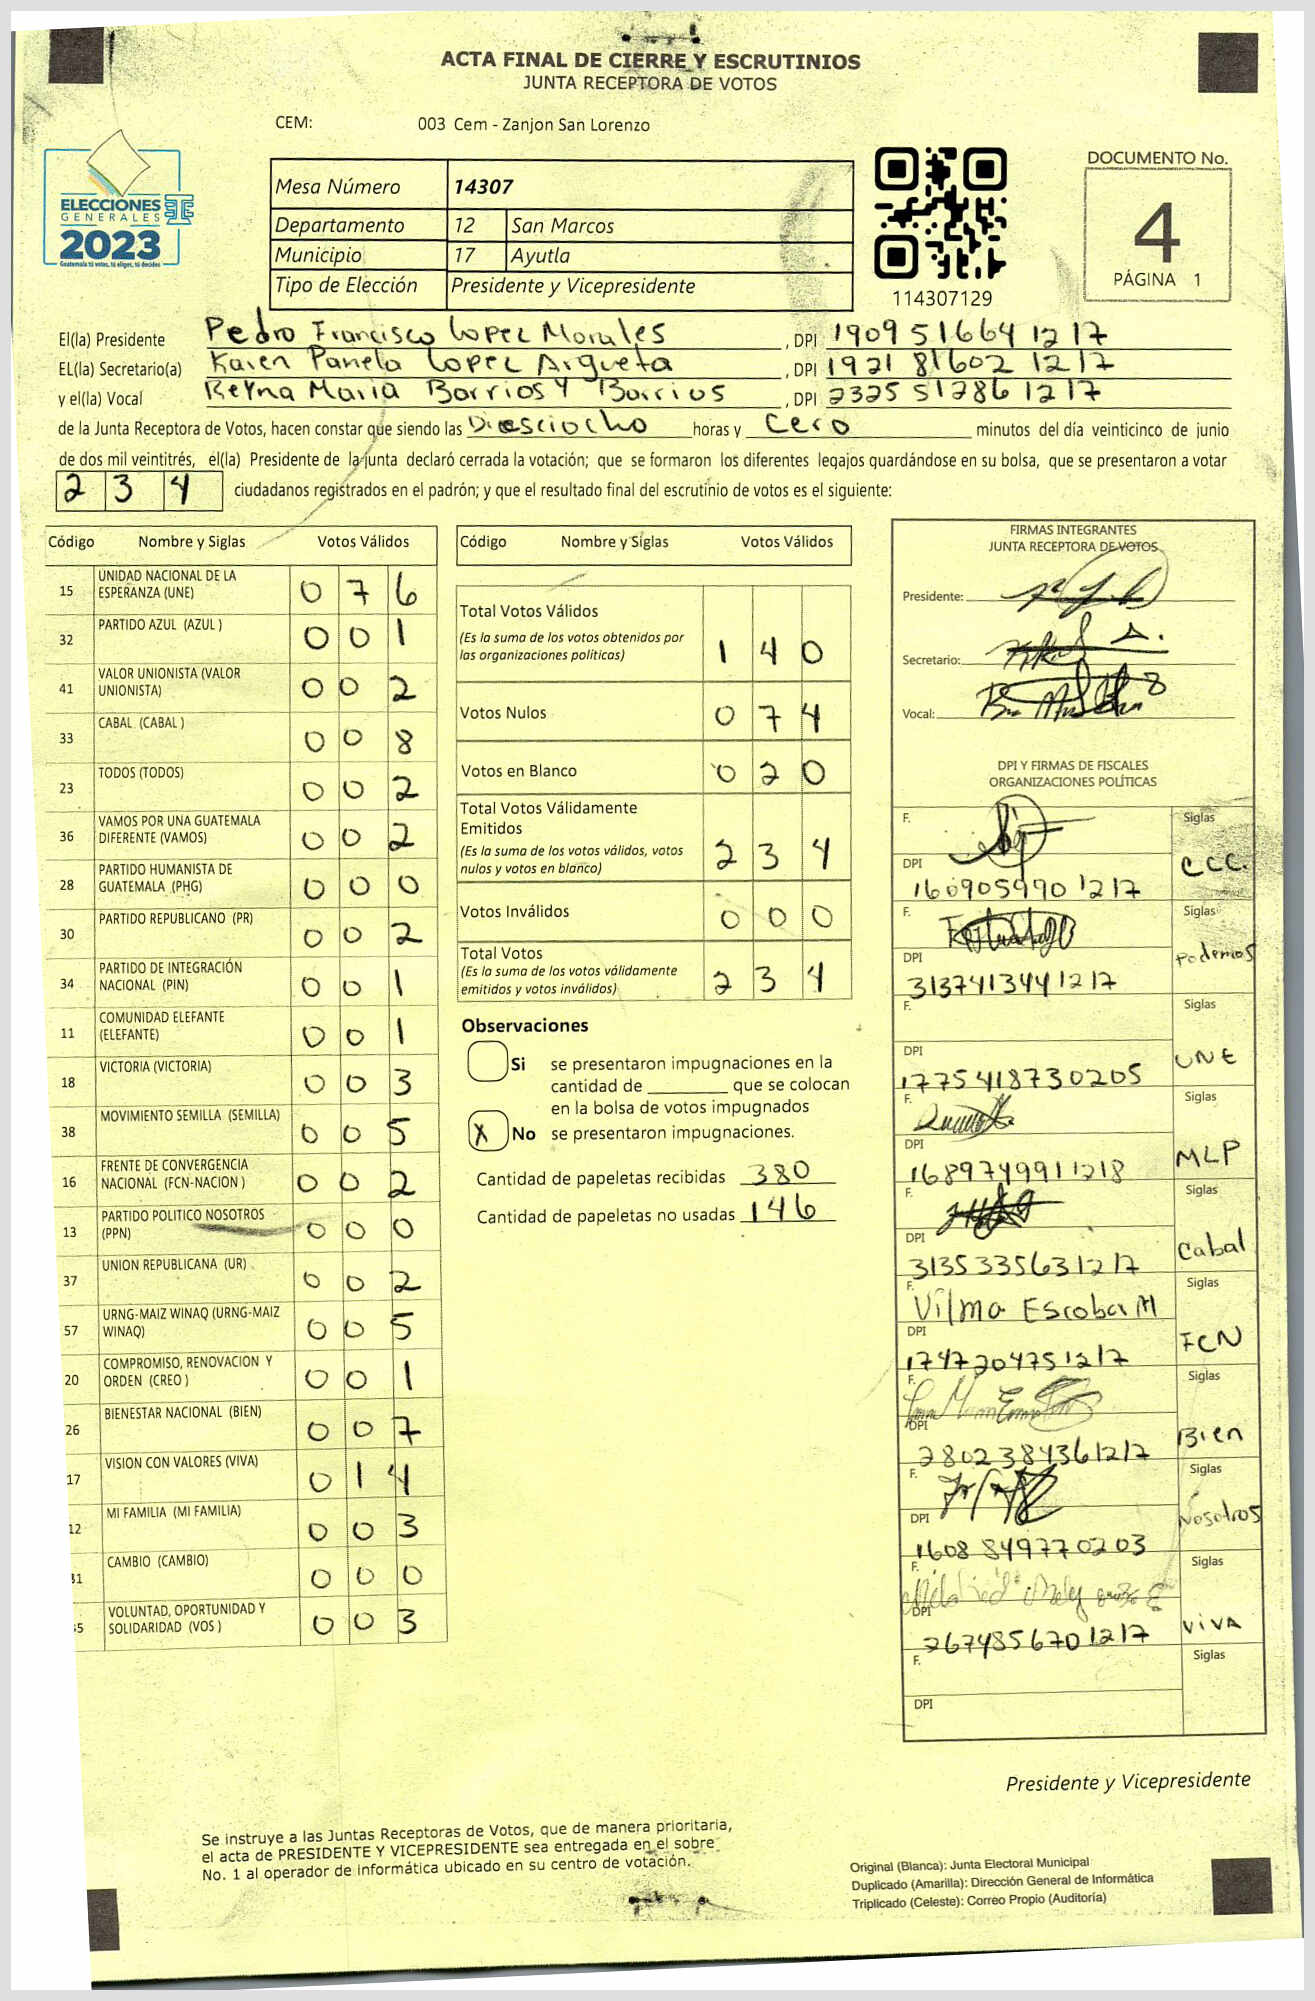 ACTA FINAL DE CIERRE Y ESCRUTINIOS
JUNTA RECEPTORA DE VOTOS
CEM: 003 Cem - Zanjon San Lorenzo
ELECCIONES
GENERALES
2023
Guatemala tú votas, tú eliges, tú decides
Mesa Número 14307
Departamento 12 San Marcos
Municipio 17 Ayutla
Tipo de Elección Presidente y Vicepresidente
114307129
DOCUMENTO No.
4
PÁGINA 1
El(la) Presidente Pedro Francisco Lopez Morales , DPI 1909 51664 1217
EL(la) Secretario(a) Karen Pamela Lopez Argueta , DPI 1921 81602 1217
y el(la) Vocal Reyna Maria Barrios Y Barrios , DPI 2325 51286 1217
de la Junta Receptora de Votos, hacen constar que siendo las Diesciocho horas y Cero minutos del día veinticinco de junio
de dos mil veintitrés, el(la) Presidente de la junta declaró cerrada la votación; que se formaron los diferentes legajos guardándose en su bolsa, que se presentaron a votar
2 3 4 ciudadanos registrados en el padrón; y que el resultado final del escrutinio de votos es el siguiente:
Código Nombre y Siglas Votos Válidos
15 UNIDAD NACIONAL DE LA ESPERANZA (UNE) 0 7 6
32 PARTIDO AZUL (AZUL ) 0 0 1
41 VALOR UNIONISTA (VALOR UNIONISTA) 0 0 2
33 CABAL (CABAL ) 0 0 8
23 TODOS (TODOS) 0 0 2
36 VAMOS POR UNA GUATEMALA DIFERENTE (VAMOS) 0 0 2
28 PARTIDO HUMANISTA DE GUATEMALA (PHG) 0 0 0
30 PARTIDO REPUBLICANO (PR) 0 0 2
34 PARTIDO DE INTEGRACIÓN NACIONAL (PIN) 0 0 1
11 COMUNIDAD ELEFANTE (ELEFANTE) 0 0 1
18 VICTORIA (VICTORIA) 0 0 3
38 MOVIMIENTO SEMILLA (SEMILLA) 0 0 5
16 FRENTE DE CONVERGENCIA NACIONAL (FCN-NACION ) 0 0 2
13 PARTIDO POLITICO NOSOTROS (PPN) 0 0 0
37 UNION REPUBLICANA (UR) 0 0 2
57 URNG-MAIZ WINAQ (URNG-MAIZ WINAQ) 0 0 5
20 COMPROMISO, RENOVACION Y ORDEN (CREO ) 0 0 1
26 BIENESTAR NACIONAL (BIEN) 0 0 7
17 VISION CON VALORES (VIVA) 0 1 4
12 MI FAMILIA (MI FAMILIA) 0 0 3
31 CAMBIO (CAMBIO) 0 0 0
35 VOLUNTAD, OPORTUNIDAD Y SOLIDARIDAD (VOS ) 0 0 3
Código Nombre y Siglas Votos Válidos
Total Votos Válidos
(Es la suma de los votos obtenidos por las organizaciones políticas) 1 4 0
Votos Nulos 0 7 4
Votos en Blanco 0 2 0
Total Votos Válidamente Emitidos
(Es la suma de los votos válidos, votos nulos y votos en blanco) 2 3 4
Votos Inválidos 0 0 0
Total Votos
(Es la suma de los votos válidamente emitidos y votos inválidos) 2 3 4
Observaciones
Si se presentaron impugnaciones en la
cantidad de ________ que se colocan
en la bolsa de votos impugnados
X No se presentaron impugnaciones.
Cantidad de papeletas recibidas 380
Cantidad de papeletas no usadas 146
FIRMAS INTEGRANTES
JUNTA RECEPTORA DE VOTOS
Presidente:
Secretario:
Vocal:
DPI Y FIRMAS DE FISCALES
ORGANIZACIONES POLÍTICAS
F. Siglas
DPI 160905990 1217 CCC.
F. Siglas
DPI 3137413441217 Podemos
F. Siglas
DPI 1775418730205 UNE
F. Siglas
DPI 1689749911218 MLP
F. Siglas
DPI 3135335631217 Cabal
F. Vilma Escobar M Siglas
DPI 1747204751217 FCN
F. Siglas
DPI 2802384361217 Bien
F. Siglas
DPI 1608 849770203 Nosotros
F. Siglas
DPI 2674856701217 VIVA
F. Siglas
DPI
Presidente y Vicepresidente
Se instruye a las Juntas Receptoras de Votos, que de manera prioritaria,
el acta de PRESIDENTE Y VICEPRESIDENTE sea entregada en el sobre
No. 1 al operador de informática ubicado en su centro de votación.
Original (Blanca): Junta Electoral Municipal
Duplicado (Amarilla): Dirección General de Informática
Triplicado (Celeste): Correo Propio (Auditoría)